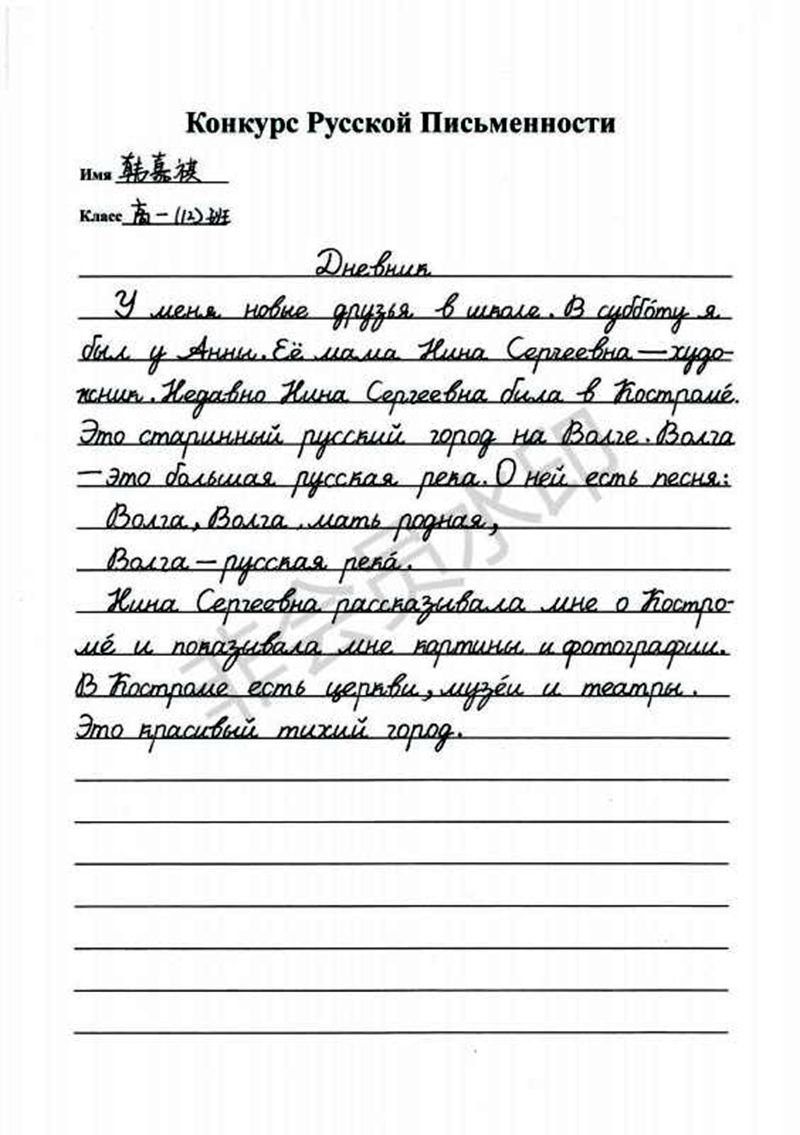 Конкурс Русской Письменности
Имя 韩嘉祺
Класс 高一(12)班
Дневник
У меня новые друзья в школе. В суббо́ту я
был у Анны. Её мама Нина Сергеевна — худо-
жник. Недавно Нина Сергеевна била в Костроме́.
Это старинный русский город на Волге. Волга
— это большая русская река. О ней есть песня:
Волга, Волга. мать родная,
Волга — русская река́.
Нина Сергеевна рассказывала мне о Костро-
ме́ и показывала мне картины и фотографии.
В Костроме есть церкви, музе́и и театры.
Это красивый тихий город.
非会员水印